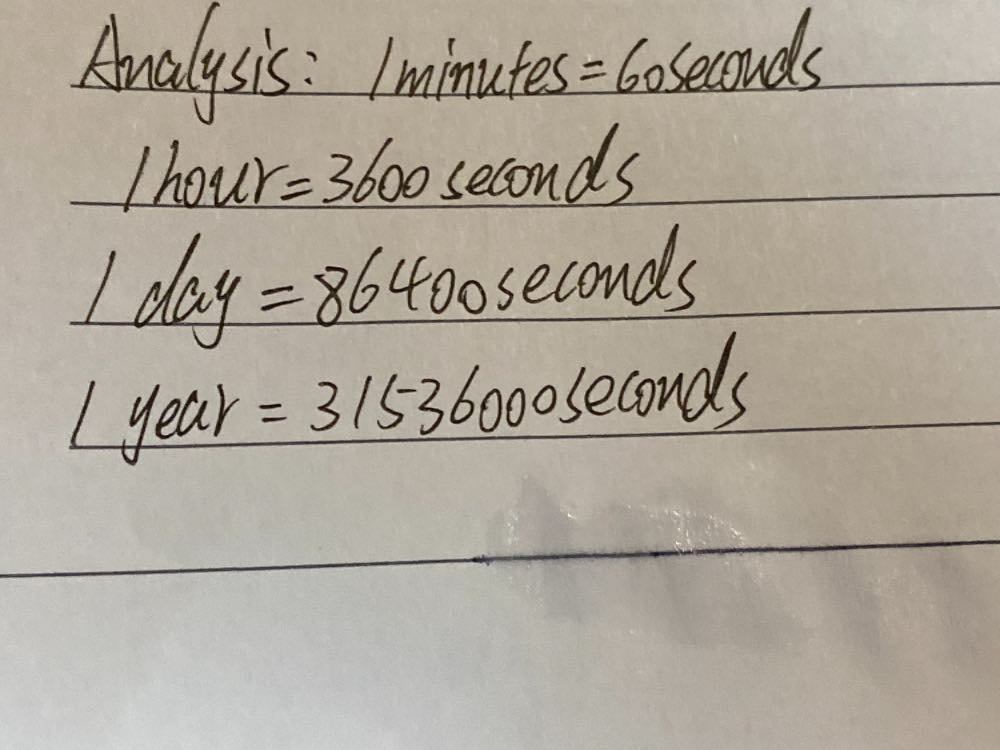 Analysis: 1 minutes = 60 seconds
1 hour = 3600 seconds
1 day = 86400 seconds
1 year = 31536000 seconds